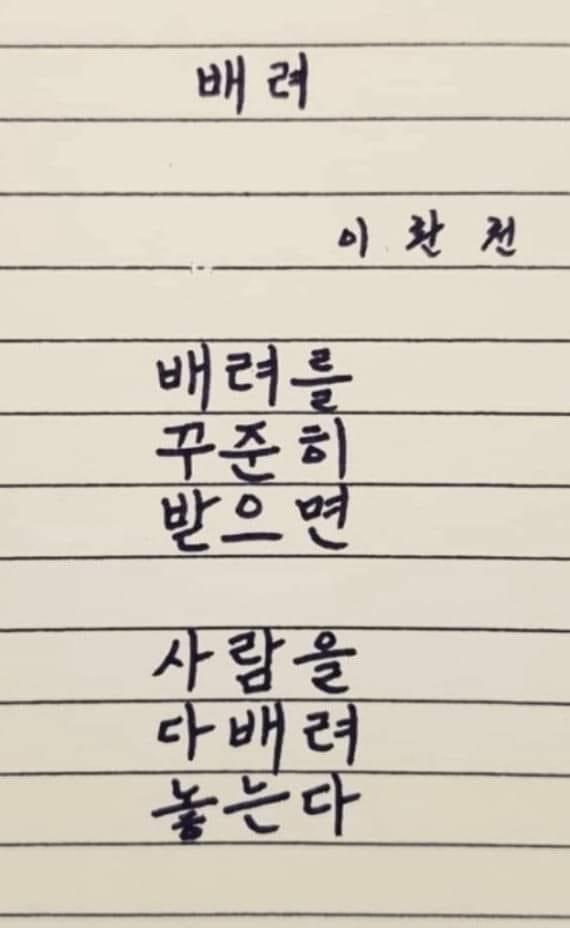 배려
이환천
배려를
꾸준히
받으면
사람을
다배려
놓는다